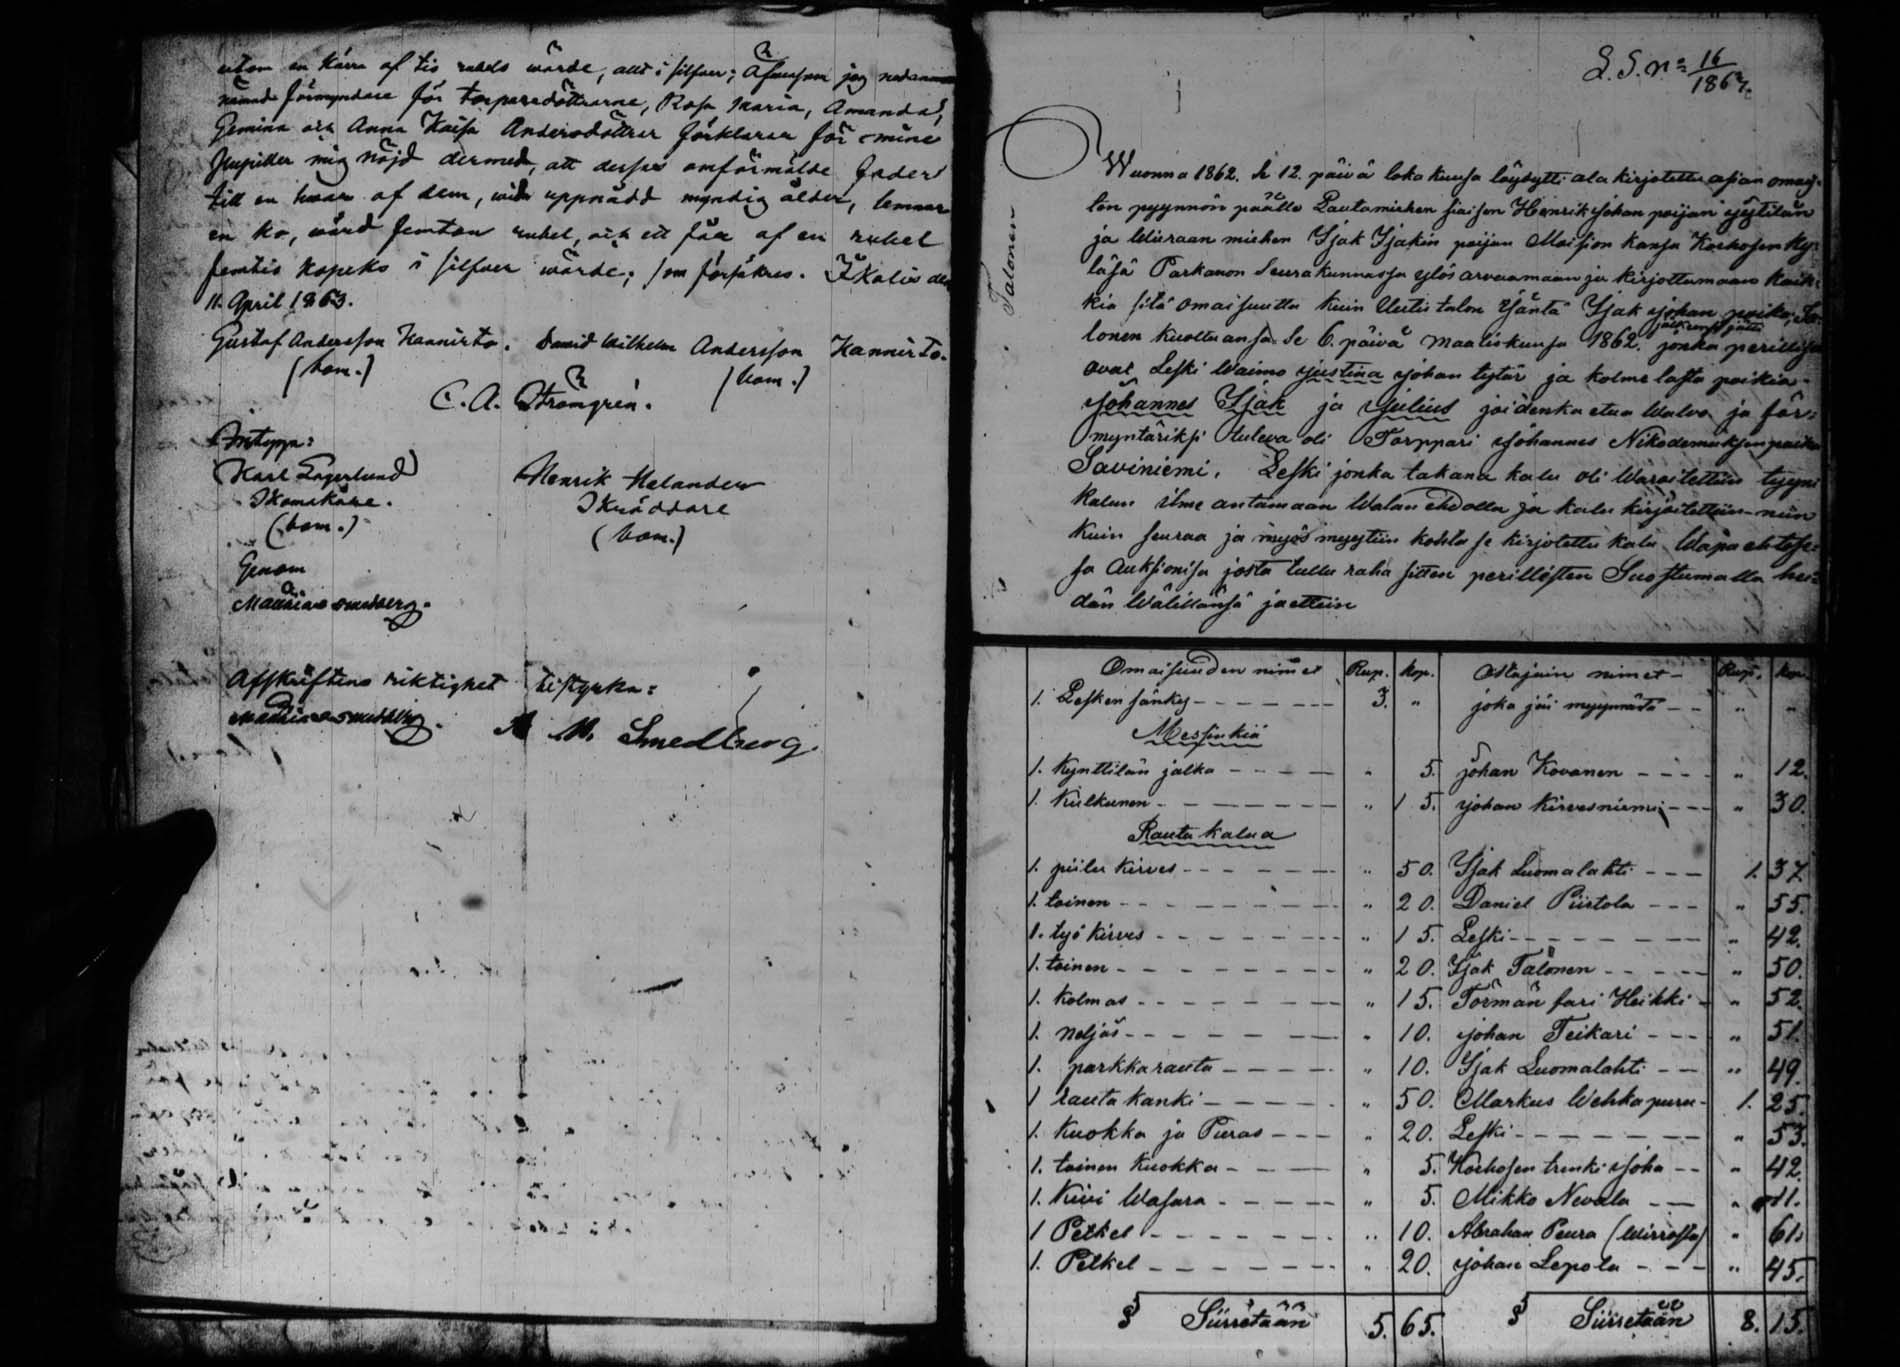 utom en kärra af tio rubels wärde, allt i silfver; Äfvensom jag nedannämnde
förmyndare för torparedöttrarne, Rosa Maria, Amanda,
Gemina och Anna Kaisa Andersdöttrar förklarar för mine
Pupiller mig nöjd dermed, att desses omförmälde fader
till en hwar af dem, wid uppnådd myndig ålder, lemnar
en ko, wärd femton rubel, och ett får af en rubel
femtio kopeks i silfver wärde; som försäkras. Ikalis den
11. April 1863.
Gustaf Andersson Hannisto. David Wilhelm Andersson Hannisto.
(bom.) (bom.)
C. A. Strömgrén.
Intyga:
Karl Lagerlund Henrik Helander
Skomakare. Skräddare
(bom.) (bom.)
Genom
Mathias Smedberg.
Afskriftens riktighet bestyrka:
Mathias Smedberg. A M. Smedberg.
L. S. n= 16/1863.
Talonen
Wuonna 1862. se 12. päivä lokakuusa löysytti ala kirjotettu asian omais-
ten pyynnön päälle Lautamiehen siaisen Henrik Johan poijan Sydtilän
ja Wieraan miehen Isak Isakin poijan Moision kansa Korhosen ky-
läsä Parkanon Seurakunnassa ylös arvaamaan ja kirjottamaan kaik-
kia sitä omaisuutta kuin Uutistalon Isäntä Isak Johan poika Ta-
lonen kuoltuansa se 6. päivä Maaliskuusa 1862. jälkeensä jätti jonka perilliset
ovat Leski Waimo Justina Johan tytär ja kolme lasta poikia
Johannes Isak ja Julius joidenka etua Walvo ja för-
myntäriksi tuleva oli Torppari Johannes Nikodemuksen poika
Saviniemi. Leski jonka takana kalu oli Waroitettiin tyyni
kalun ilme antamaan Walan ehdolla ja kalu kirjoitettiin niin
kuin seuraa ja myös myytiin kohta se kirjotettu kalu Wapaehtose-
sa Auksionisa josta tullu raha sitten perillisten Suostumalla hei-
dän Wälillänsä jaettiin
Omaisuuden nimet Rup. kop. Ostajain nimet Rup. kop.
1. Lesken sänky 3. " joka jäi myymätä " "
Messinkiä
1. Kynttilän jalka " 5. Johan Kovanen " 12.
1. Kulkunen " 15. Johan Kirvesniemi " 30.
Rauta kalua
1. piilu kirves " 50. Isak Luomalahti 1. 37.
1. toinen " 20. Daniel Piirtola " 55.
1. työ kirves " 15. Leski " 42.
1. toinen " 20. Isak Talonen " 50.
1. Kolmas " 15. Törmän fari Heikki " 52.
1. neljäs " 10. Johan Teikari " 51.
1. parkkarauta " 10. Isak Luomalahti " 49.
1 rauta kanki " 50. Markus Wehkapuru 1. 25.
1. Kuokka ja Puras " 20. Leski " 53.
1. toinen Kuokka " 5. Korhosen trenki Joha " 42.
1. Kivi Wasara " 5. Mikko Nevala " 11.
1 Petkel " 10. Abraham Peura (Wirroilta) " 61.
1. Petkel " 20. Johan Lepola " 45.
§ Siirretään 5. 65. § Siirretään 8. 15.